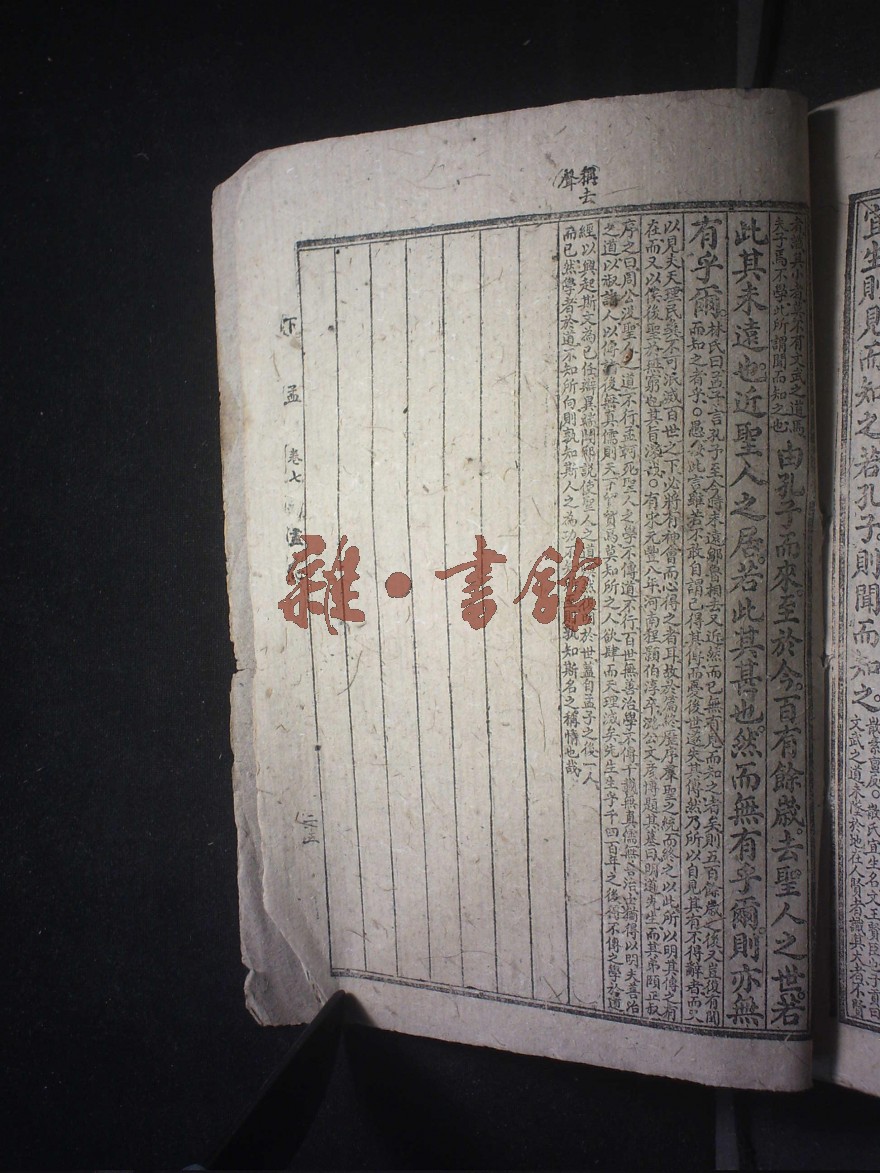 宜生則見而知之若孔子則聞而知之。
散素亶反。○散氏宜生名文王賢臣也子貢曰
文武之道未墜於地在人賢者識其大者不賢
者識其小者莫不有文武之道焉
夫子焉不學此所謂聞而知之也
由孔子而來至於今。百有餘歲。去聖人之世。若
此其未遠也。近聖人之居。若此其甚也。然而無有乎爾。則亦無
有乎爾。
林氏曰孟子言孔子至今時未遠鄒魯相去又近然而已無有見而知之者矣則五百餘歲之後又豈復有聞
而知之者乎○愚按此言雖若不敢自謂已得其傳而憂後世遂失其傳然乃所以自見其有不得辭者而又
以見夫天理民彝不可泯滅百世之下必將有神會而心得之者耳故於篇終歷序羣聖之統而終之以此所以明其傳之有
在而又以俟後聖於無窮也其旨深哉○有宋元豐八年河南程顥伯淳卒潞公文彥博題其墓曰明道先生而其弟頤正叔
序之曰周公沒聖人之道不行孟軻死聖人之學不傳道不行百世無善治學不傳千載無真儒無善治士猶得以明夫善治
之道以淑諸人以傳諸後無真儒則天下貿貿焉莫知所之人欲肆而天理滅矣先生生乎千四百年之後得不傳之學於遺
經以興起斯文為己任辨異端闢邪說使聖人之道於世蓋自孟子之後一人
而已然學者於道不知所向則孰知斯人之為功不孰知斯名之稱情也哉
稱去
聲
下孟 卷七
雜·書館